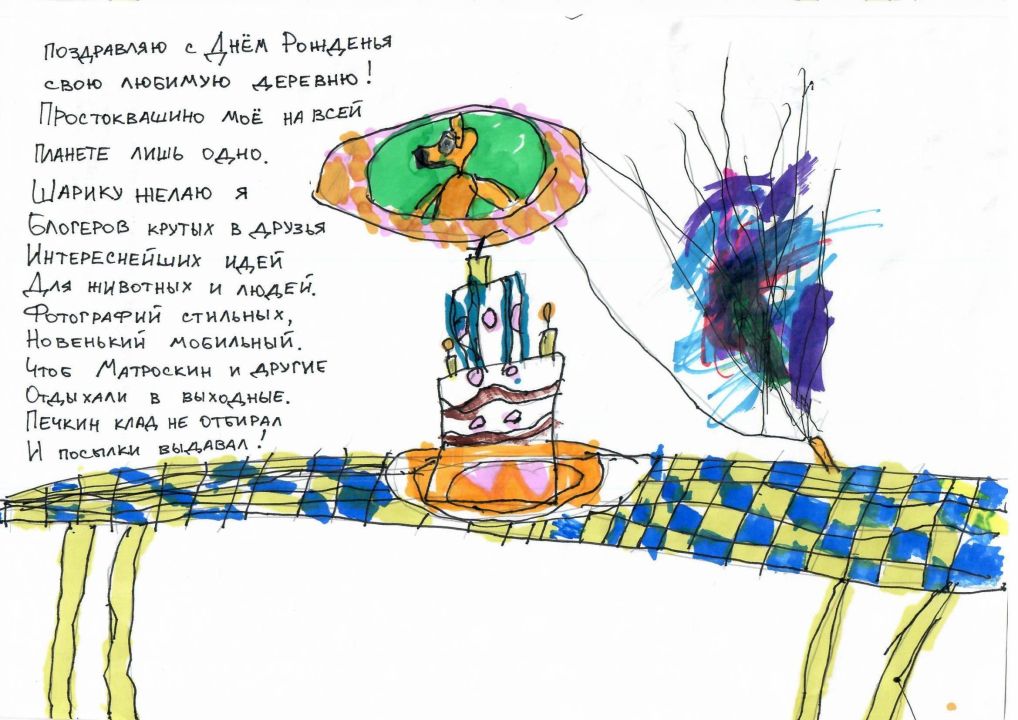 Поздравляю с Днём Рожденья
свою любимую деревню!
Простоквашино моё на всей
планете лишь одно.
Шарику желаю я
Блогеров крутых в друзья
Интереснейших идей
Для животных и людей.
Фотографий стильных,
Новенький мобильный.
Чтоб Матроскин и другие
Отдыхали в выходные.
Печкин клад не отбирал
И посылки выдавал!